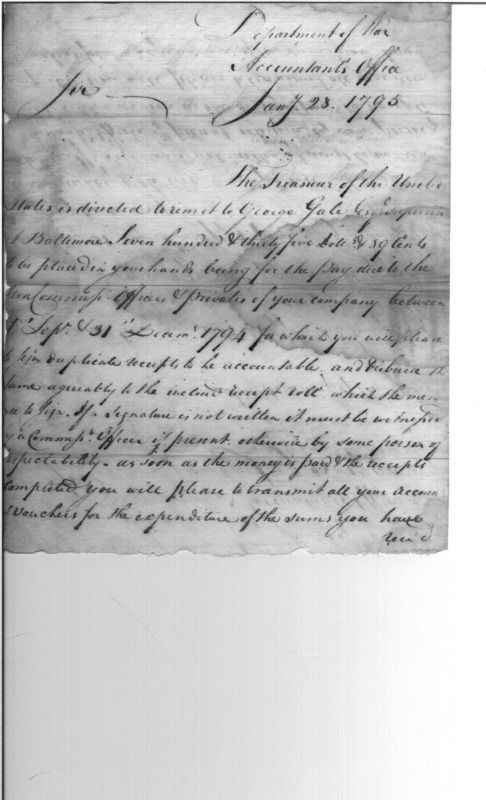 Department of War
Accountant's Office
Sir
Jany 28. 1795
The Treasurer of the Unite
States is directed to remit to George Gale Esqr Supervis
At Baltimore Seven hundred & thirty five Doll & 89 Cents
to be placed in your hands being for the pay due to the
non Commissd Officers & Privates of your company between
1st Sepr & 31st Decemr 1794 for which you will please
to sign duplicate receipts to be accountable, and disburse th
same agreeably to the inclosd receipt roll which the men
are to sign. If a signature is not written it must be witnesse
by a Commissd Officer if present, otherwise by some person of
respectability. as soon as the money is paid & the receipts
completed you will please to transmit all your accoun
& vouchers for the expenditure of the sums you have
recd